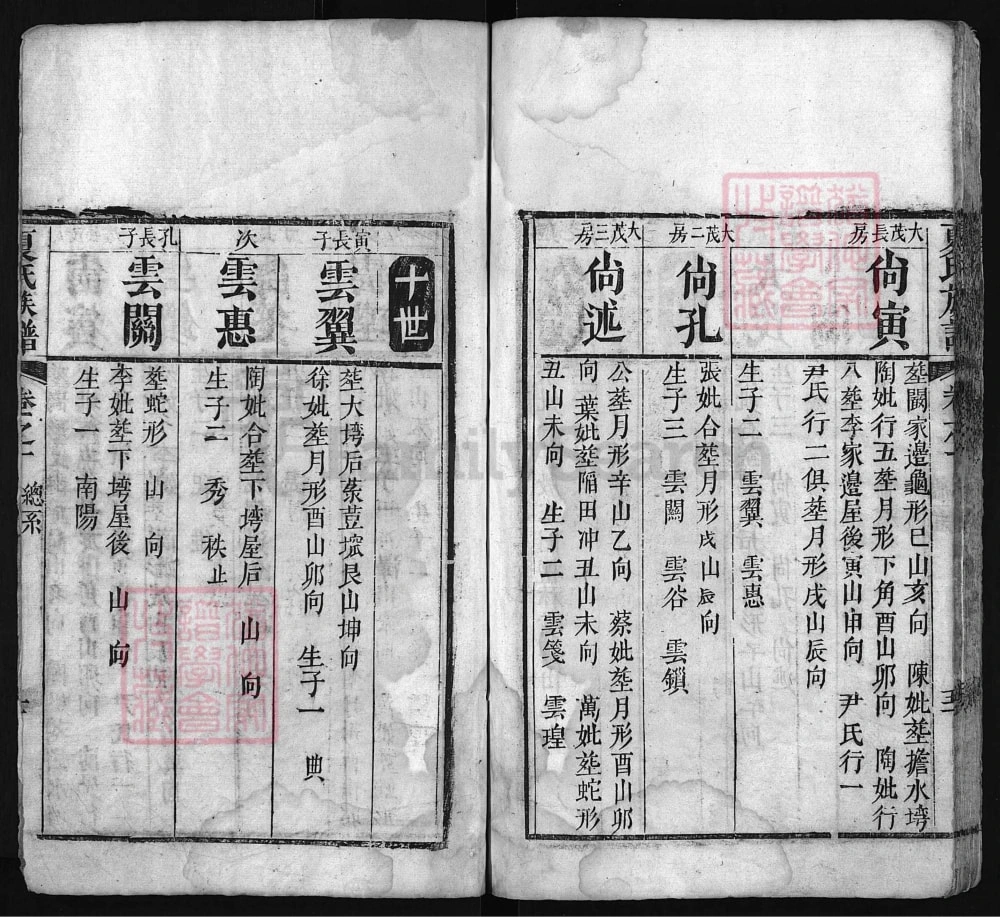 大茂長房
尙寅
塟闗家邊龜形巳山亥向　陳妣塟擔水塆
陶妣行五塟月形下角酉山卯向　陶妣行
八塟李家邊屋後寅山申向　尹氏行一
尹氏行二俱塟月形戌山辰向
生子二　雲翼　雲惠
大茂二房
尙孔
張妣合塟月形戌山辰向
生子三　雲關　雲谷　雲鎖
大茂三房
尙述
公塟月形辛山乙向　蔡妣塟月形酉山卯
向　葉妣塟陷田冲丑山未向　萬妣塟蛇形
丑山未向　生子二　雲箋　雲瑝
十世
寅長子
雲翼
塟大塆后菉荳塝艮山坤向
徐妣塟月形酉山卯向　生子一　典
次
雲惠
陶妣合塟下塆屋后　山　向
生子二　秀　秩止
孔長子
雲關
塟蛇形　山　向
李妣塟下塆屋後　山　向
生子一　南陽
夏氏族譜　卷之一　總系